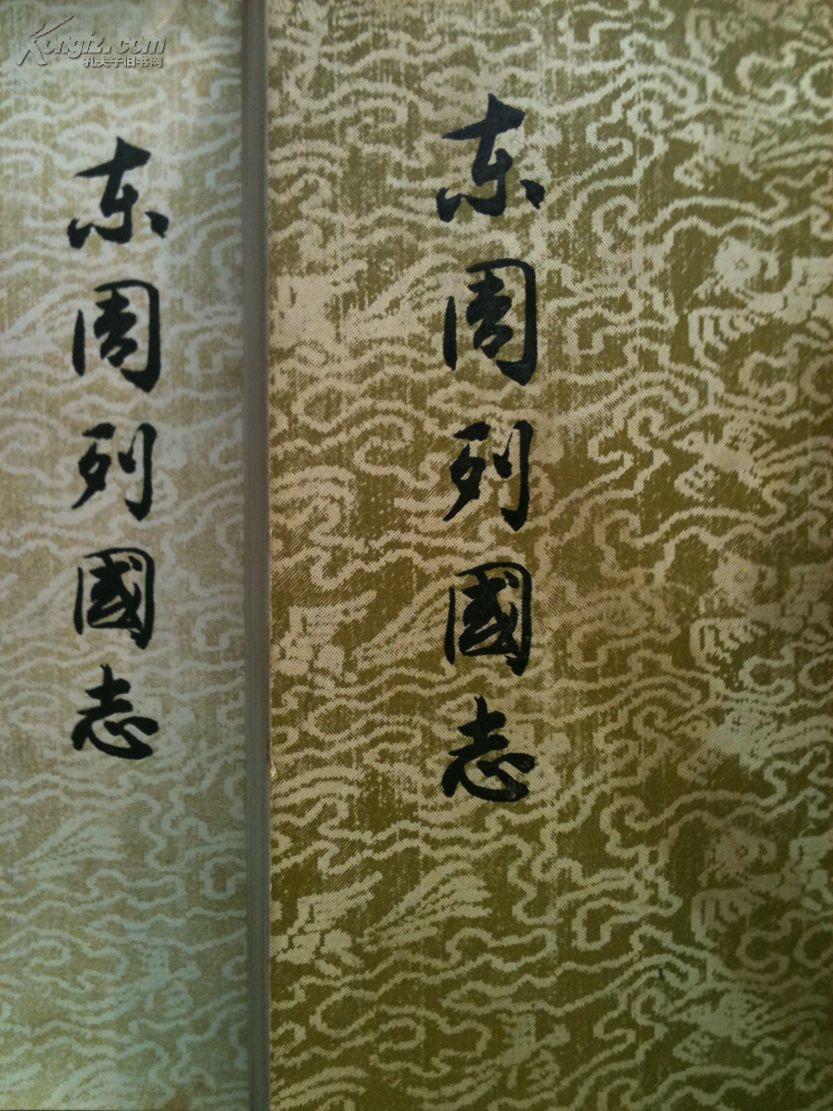 Kongfz.com
孔夫子旧书网
东周列國志
东周列國志